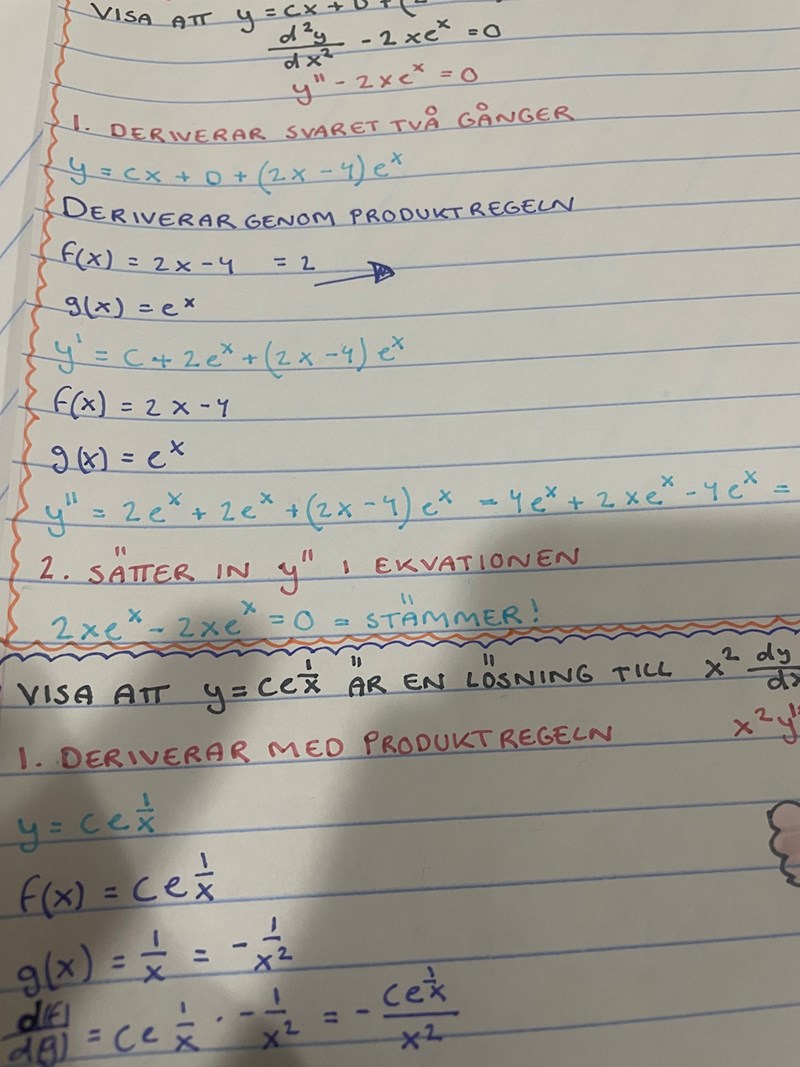 VISA ATT y = CX + D + (2
d²y/dx² - 2xeˣ = 0
y'' - 2xeˣ = 0
1. DERIVERAR SVARET TVÅ GÅNGER
y = CX + D + (2x - 4)eˣ
DERIVERAR GENOM PRODUKTREGELN
f(x) = 2x - 4 = 2 →
g(x) = eˣ
y' = C + 2eˣ + (2x - 4)eˣ
f(x) = 2x - 4
g(x) = eˣ
y'' = 2eˣ + 2eˣ + (2x - 4)eˣ = 4eˣ + 2xeˣ - 4eˣ =
2. SÄTTER IN y'' I EKVATIONEN
2xeˣ - 2xeˣ = 0 = STÄMMER!
VISA ATT y = Ce^(1/x) ÄR EN LÖSNING TILL x² dy/dx
1. DERIVERAR MED PRODUKTREGELN x²y'
y = Ce^(1/x)
f(x) = Ce^(1/x)
g(x) = 1/x = - 1/x²
d(f)/d(g) = Ce^(1/x) · - 1/x² = - Ce^(1/x)/x²